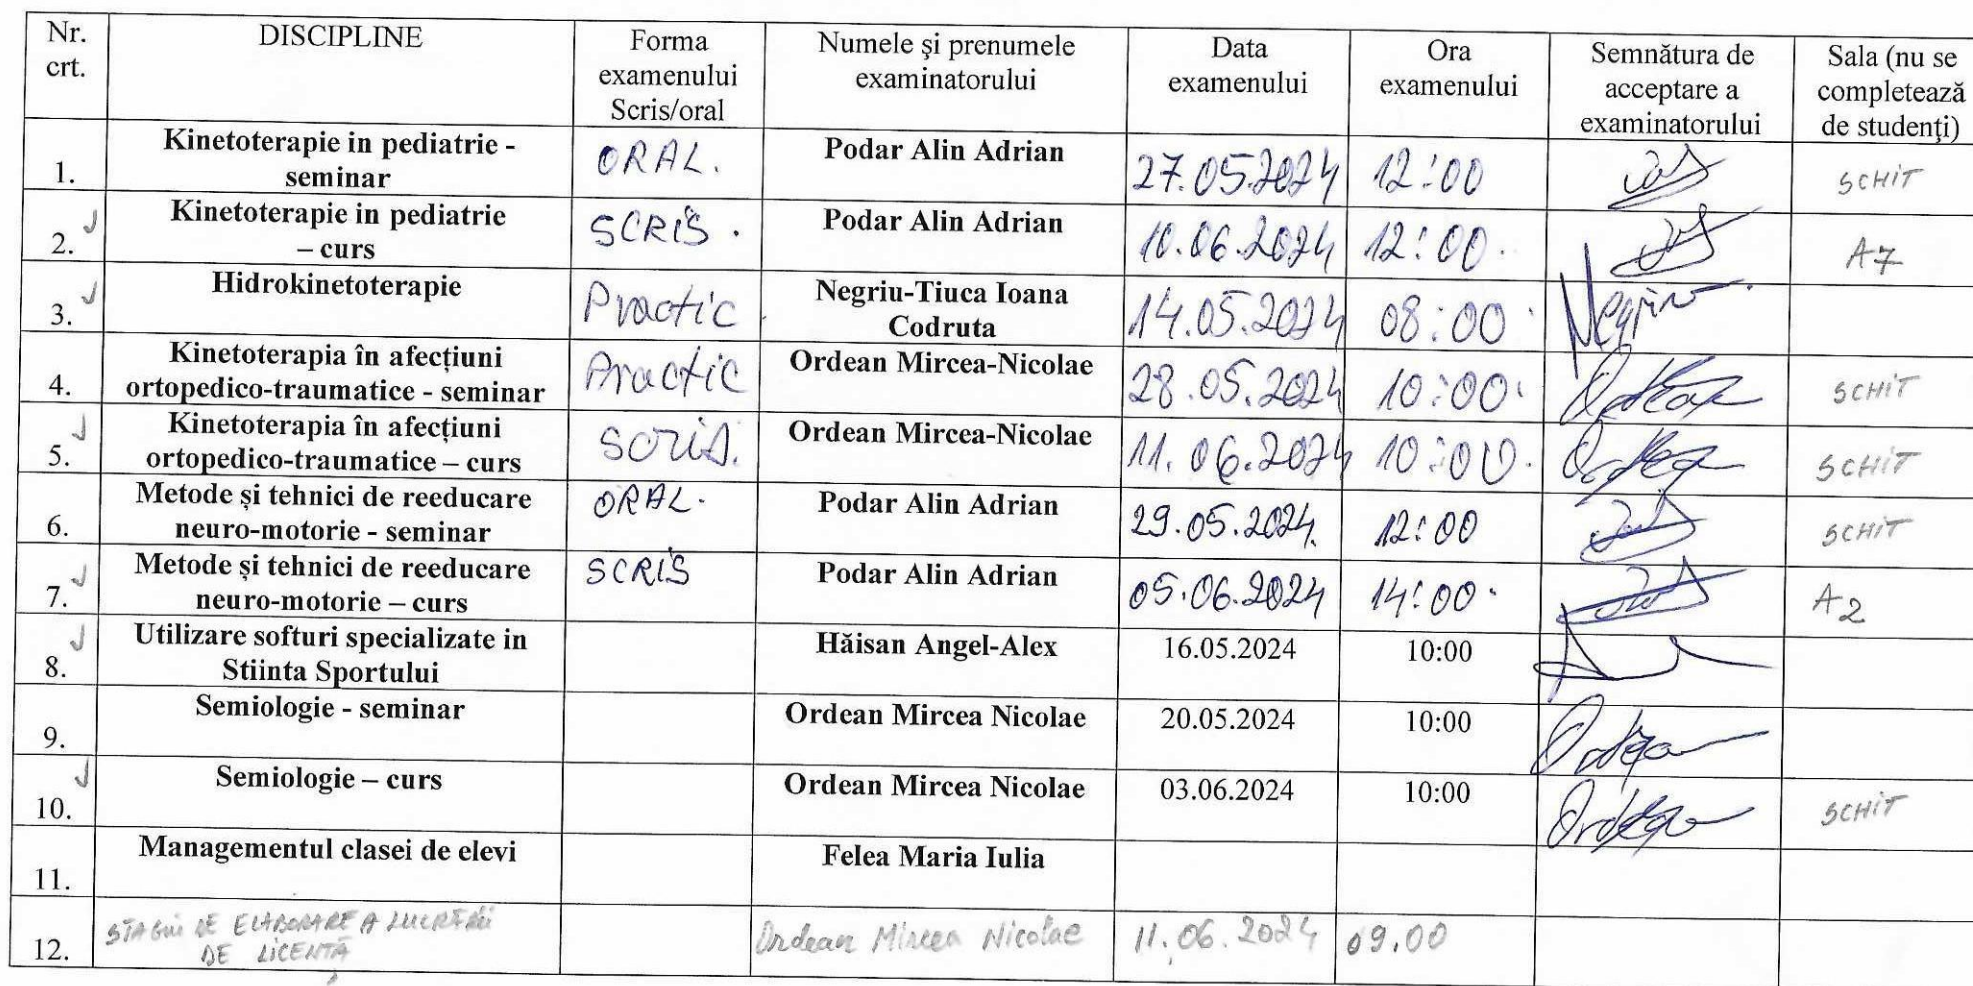 Nr. crt. DISCIPLINE Forma examenului Scris/oral Numele și prenumele examinatorului Data examenului Ora examenului Semnătura de acceptare a examinatorului Sala (nu se completează de studenți)
1. Kinetoterapie in pediatrie - seminar ORAL. Podar Alin Adrian 27.05.2024 12:00 SCHIT
2. Kinetoterapie in pediatrie – curs SCRIS. Podar Alin Adrian 10.06.2024 12:00. A7
3. Hidrokinetoterapie Practic Negriu-Tiuca Ioana Codruta 14.05.2024 08:00
4. Kinetoterapia în afecțiuni ortopedico-traumatice - seminar Practic Ordean Mircea-Nicolae 28.05.2024 10:00. SCHIT
5. Kinetoterapia în afecțiuni ortopedico-traumatice – curs scris. Ordean Mircea-Nicolae 11.06.2024 10:00. SCHIT
6. Metode și tehnici de reeducare neuro-motorie - seminar ORAL. Podar Alin Adrian 29.05.2024. 12:00 SCHIT
7. Metode și tehnici de reeducare neuro-motorie – curs SCRIS Podar Alin Adrian 05.06.2024 14:00. A2
8. Utilizare softuri specializate in Stiinta Sportului Hăisan Angel-Alex 16.05.2024 10:00
9. Semiologie - seminar Ordean Mircea Nicolae 20.05.2024 10:00
10. Semiologie – curs Ordean Mircea Nicolae 03.06.2024 10:00 SCHIT
11. Managementul clasei de elevi Felea Maria Iulia
12. STAGIU DE ELABORARE A LUCRĂRII DE LICENȚĂ Ordean Mircea Nicolae 11.06.2024 09.00